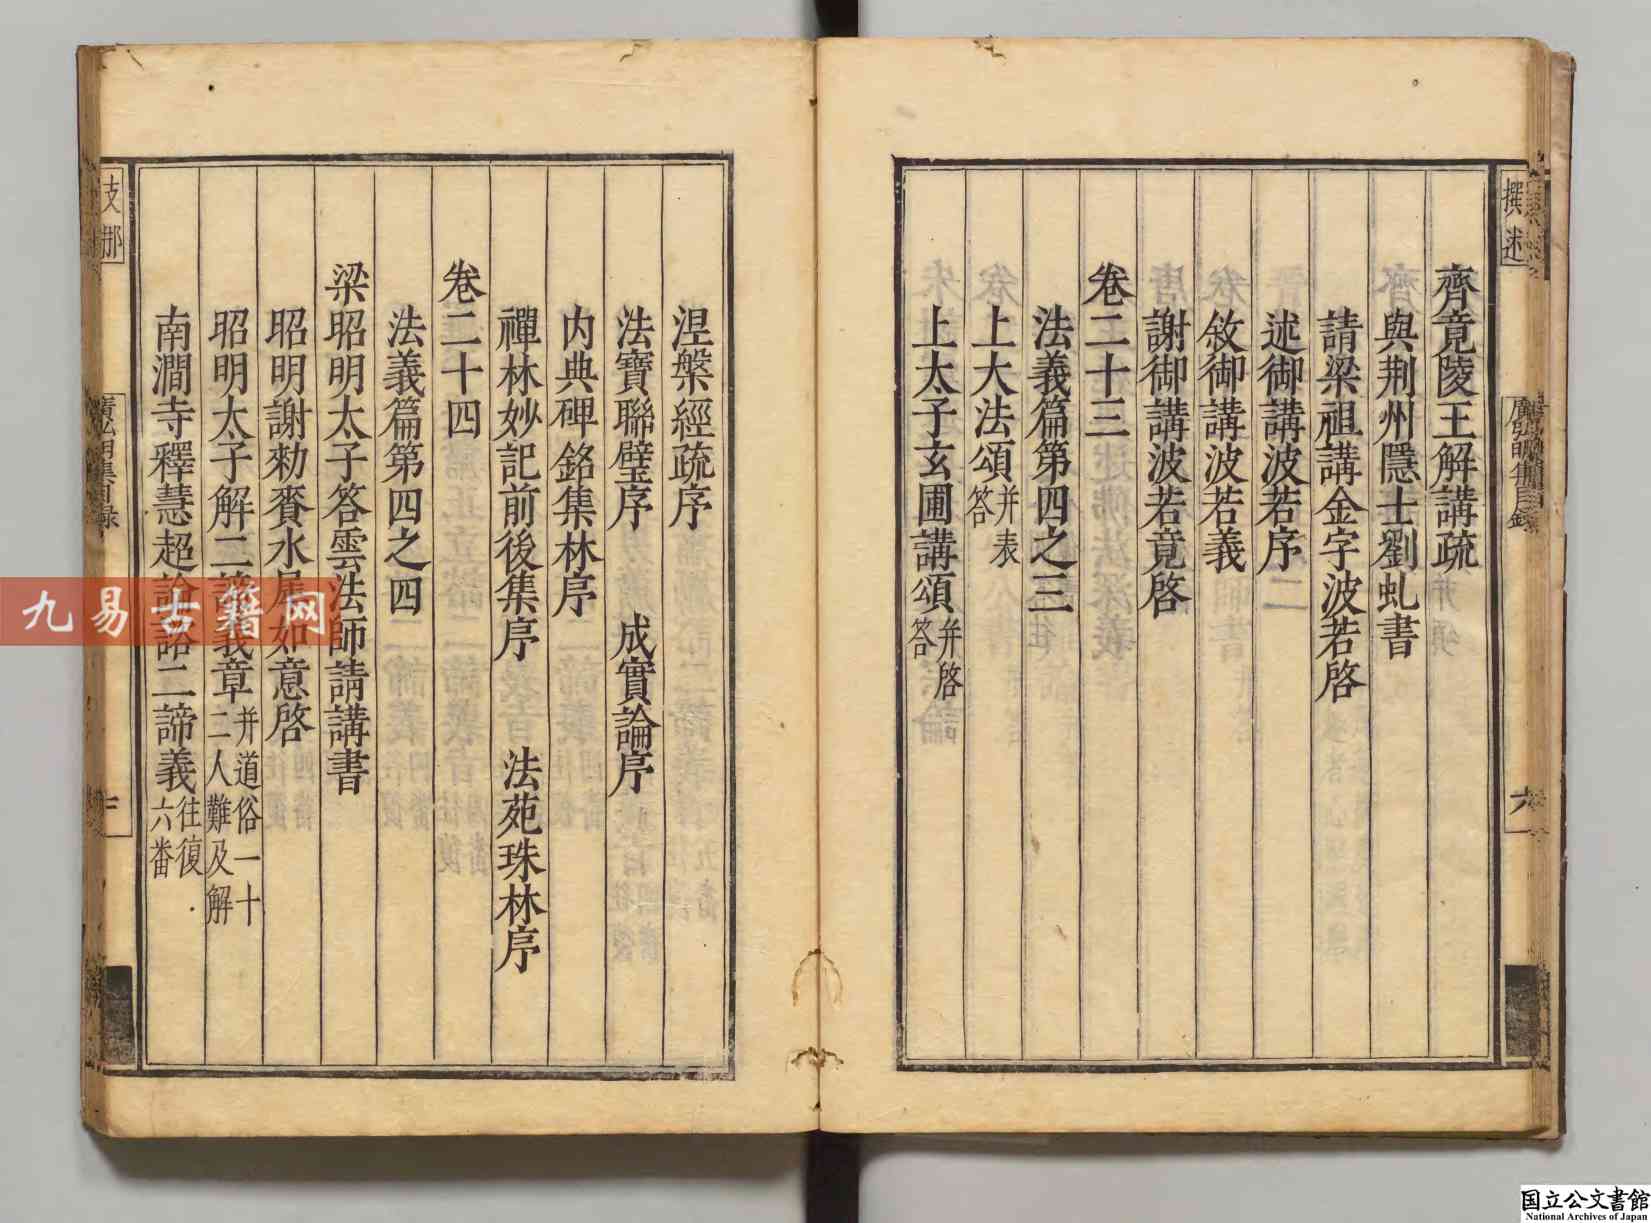 撰述
廣弘明集目錄
六
齊竟陵王解講疏
與荆州隱士劉虬書
請梁祖講金字波若啓
述御講波若序
敘御講波若義
謝御講波若竟啓
卷二十三
法義篇第四之三
上大法頌并表答
上太子玄圃講頌并啓答
涅槃經疏序
法寶聯璧序 成實論序
内典碑銘集林序
禪林妙記前後集序 法苑珠林序
卷二十四
法義篇第四之四
梁昭明太子答雲法師請講書
昭明謝勑賚水犀如意啓
昭明太子解二諦義章并道俗一十二人難及解
南澗寺釋慧超論諮二諦義往復六番
支那
廣弘明集目錄
九易古籍网
国立公文書館
National Archives of Japan